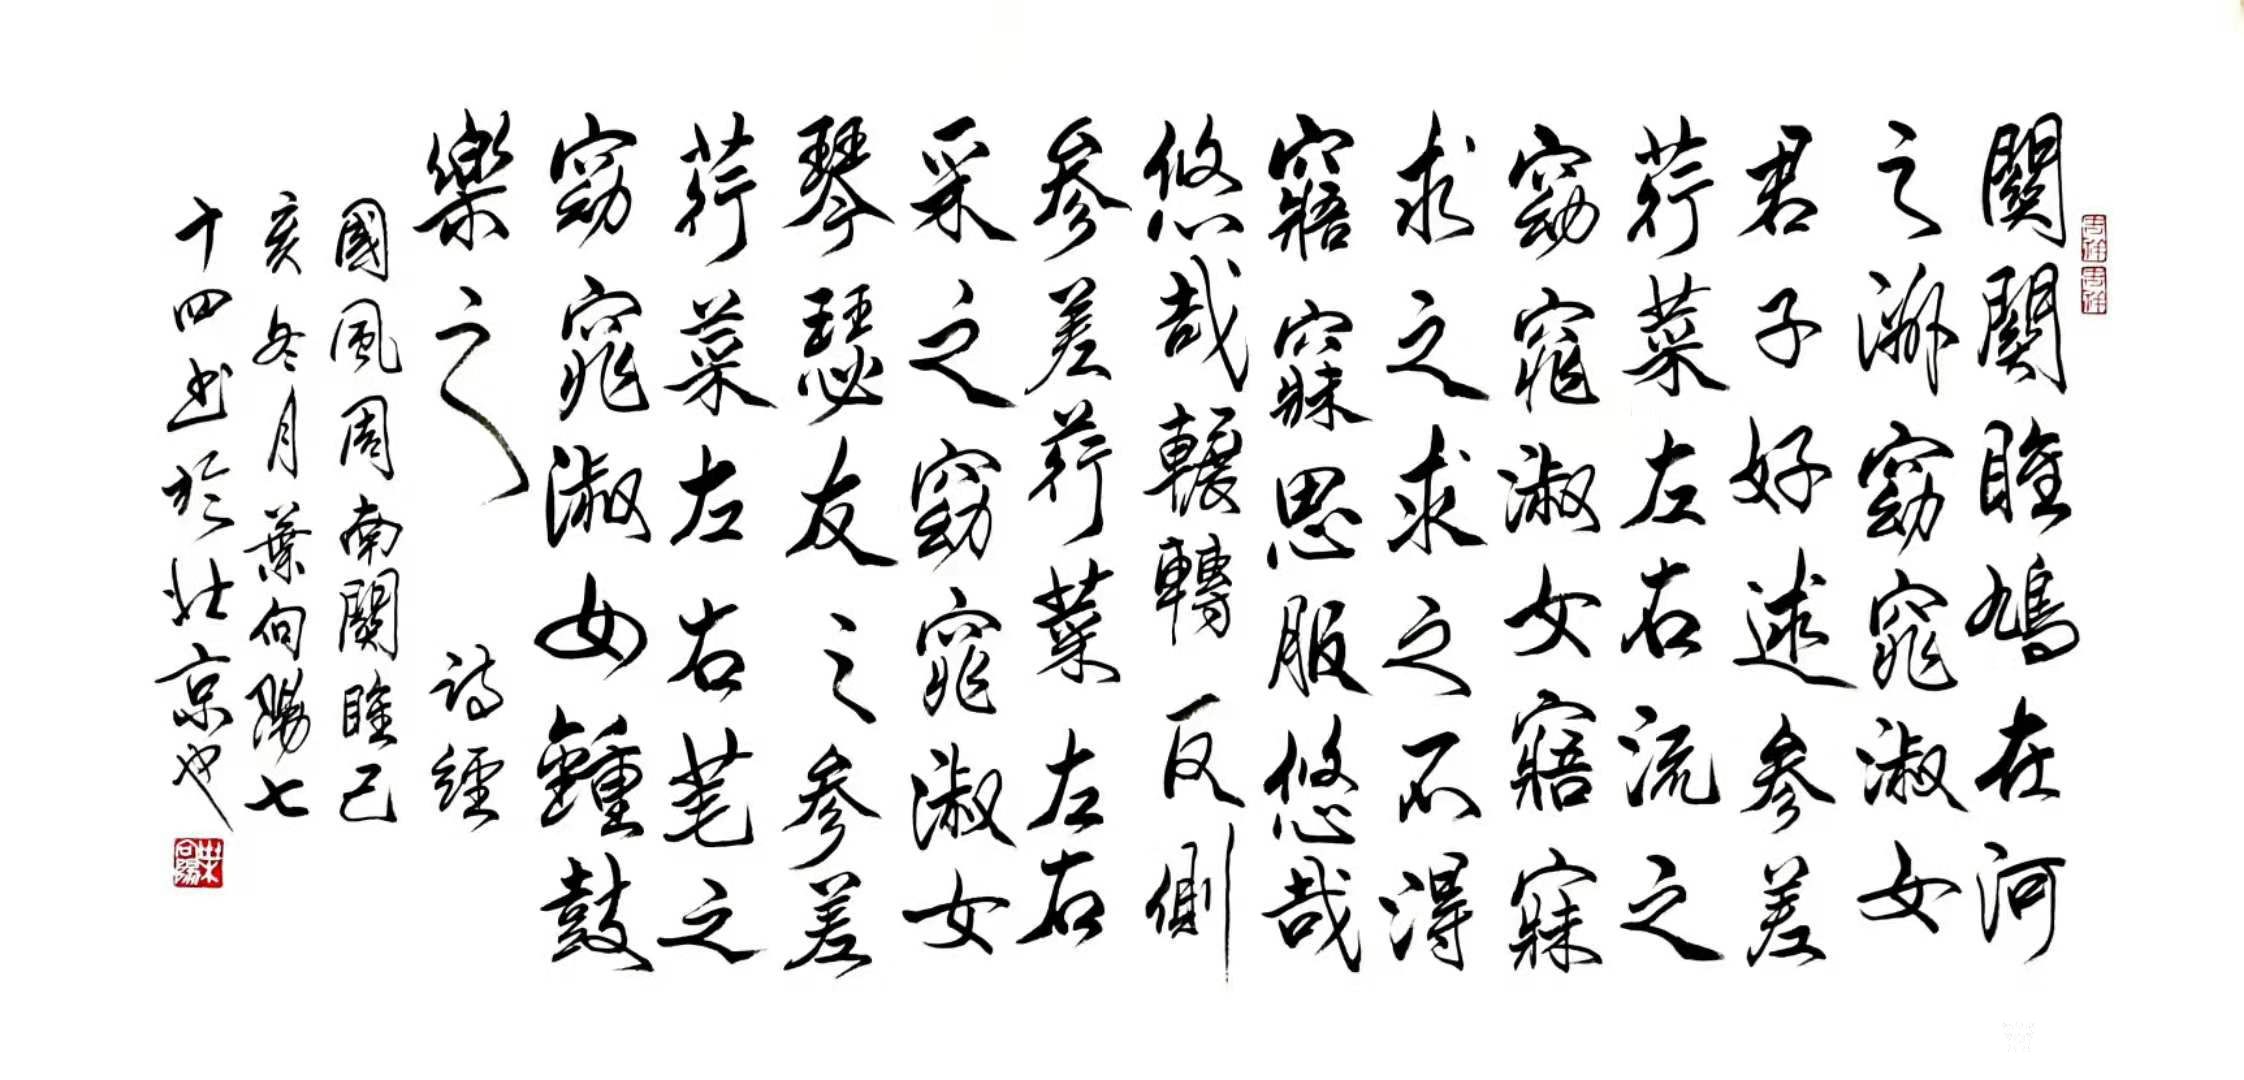 吉祥
吉祥
關關雎鳩在河
之洲窈窕淑女
君子好逑參差
荇菜左右流之
窈窕淑女寤寐
求之求之不得
寤寐思服悠哉
悠哉輾轉反側
參差荇菜左右
采之窈窕淑女
琴瑟友之參差
荇菜左右芼之
窈窕淑女鍾鼓
樂之 詩經
國風周南關雎己
亥冬月葉向陽七
十四书於北京也